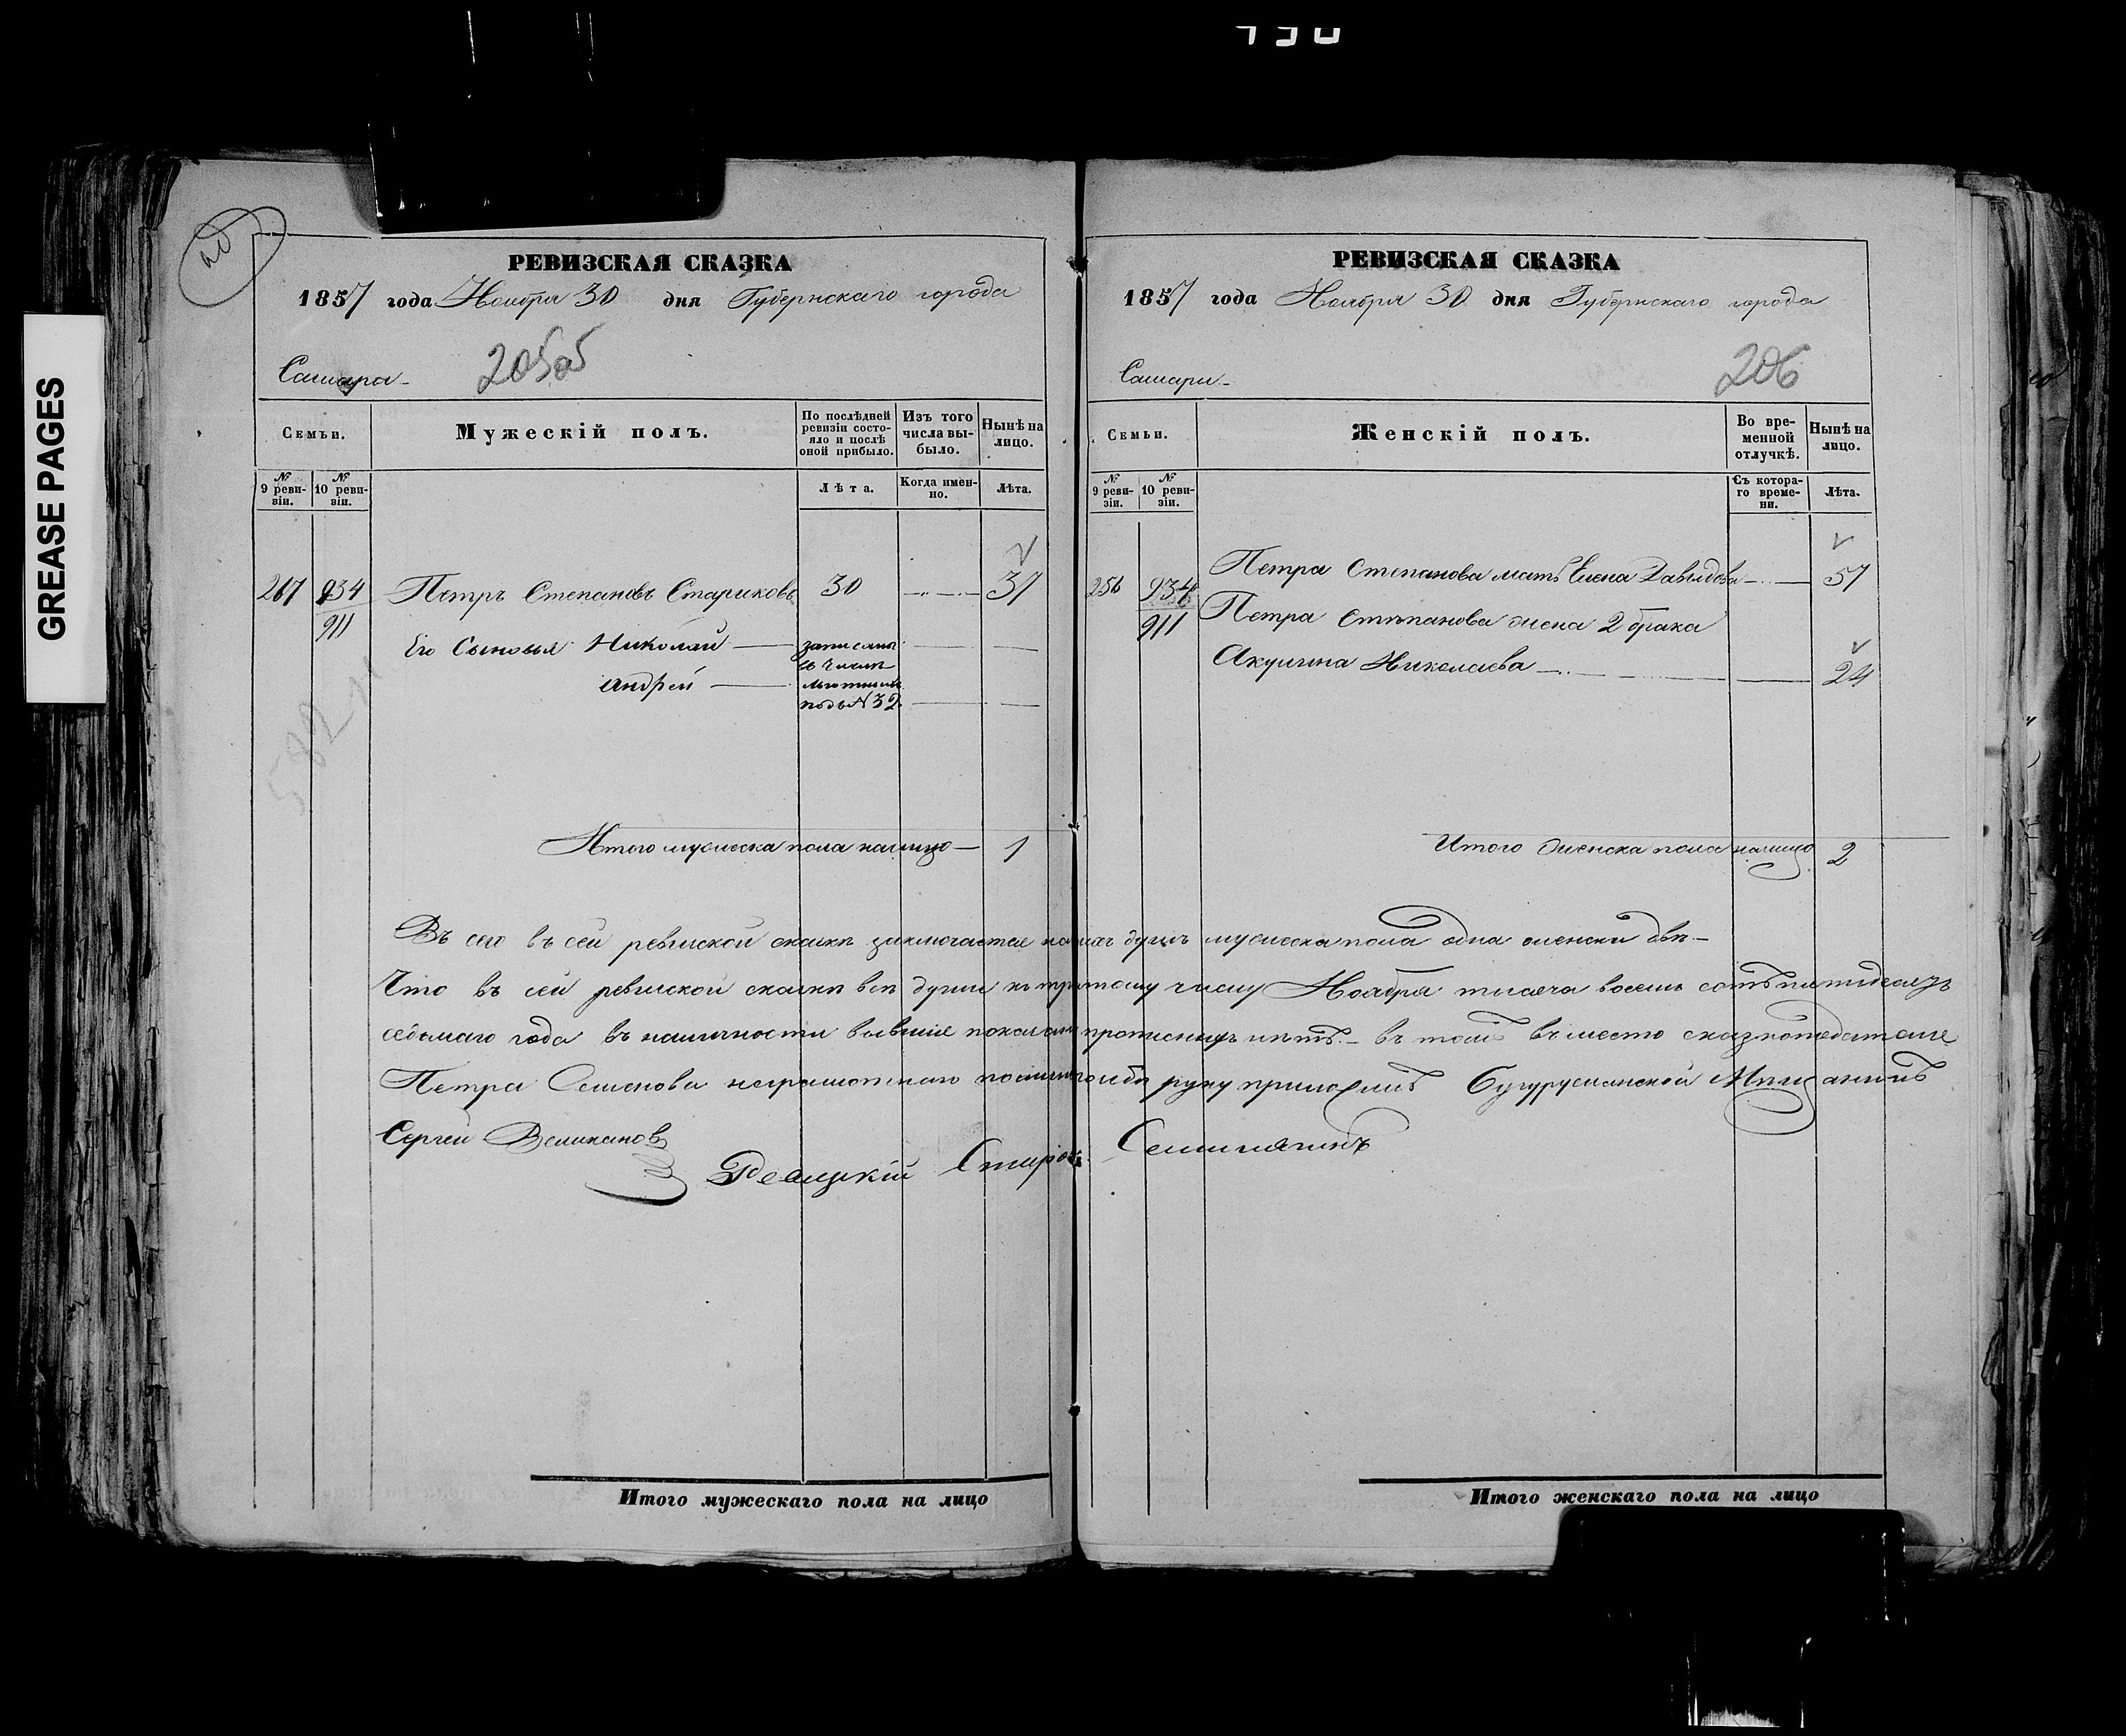 GREASE PAGES
РЕВИЗСКАЯ СКАЗКА
1857 года Ноября 30 дня Губернскаго города
Самара
205об
Семьи.
Мужескій полъ.
По послѣдней ревизіи состояло и послѣ оной прибыло.
Изъ того числа выбыло.
Нынѣ на лицо.
№ 9 ревизіи.
№ 10 ревизіи.
Лѣта.
Когда именно.
Лѣта.
267 934 Петръ Степановъ Стариковъ 30 37
911
Его Сыновья Николай записаны
въ числѣ
Андрей
подъ №32
Итого мужеска пола налицо 1
РЕВИЗСКАЯ СКАЗКА
1857 года Ноября 30 дня Губернскаго города
Самары
206
Семьи.
Женскій полъ.
Во временной отлучкѣ.
Нынѣ на лицо.
№ 9 ревизіи.
№ 10 ревизіи.
Съ котораго времени.
Лѣта.
256 934 Петра Степанова мать Елена Давыдова 57
911 Петра Степанова жена 2 брака
Акулина Николаева 24
Итого женска пола налицо 2
въ сей ревиской скаски заключается душъ мужеска пола одна женска двѣ
Что въ сей ревиской скаски всѣ души къ Ноября тысяча восемь сотъ пятидесятъ
седьмаго года въ наличности бывшие нѣтъ. въ томъ въместо сказкоподателя
Петра Семенова неграмотнаго руку приложилъ Бугурусланской Мѣщанинъ
Сергей Великанов
Сѣмилякинъ
Итого мужескаго пола на лицо
Итого женскаго пола на лицо